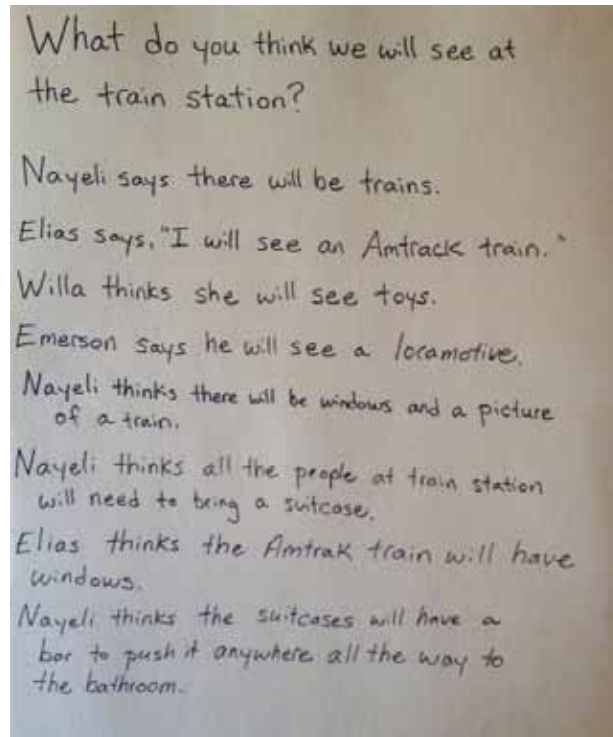 What do you think we will see at
the train station?
Nayeli says there will be trains.
Elias says, "I will see an Amtrack train."
Willa thinks she will see toys.
Emerson says he will see a locamotive.
Nayeli thinks there will be windows and a picture
of a train.
Nayeli thinks all the people at train station
will need to bring a suitcase.
Elias thinks the Amtrak train will have
windows.
Nayeli thinks the suitcases will have a
bar to push it anywhere all the way to
the bathroom.